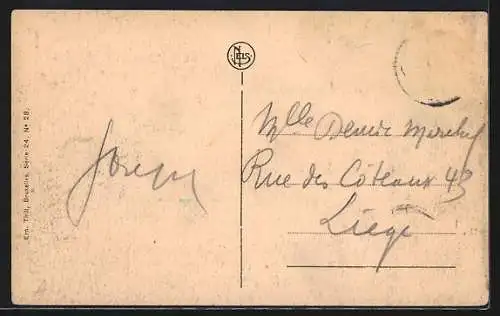 NELS
Ern. Thill, Bruxelles, Série 24, N° 28.
Joseph
Mlle Denise
Rue des Côteaux 43
Liège